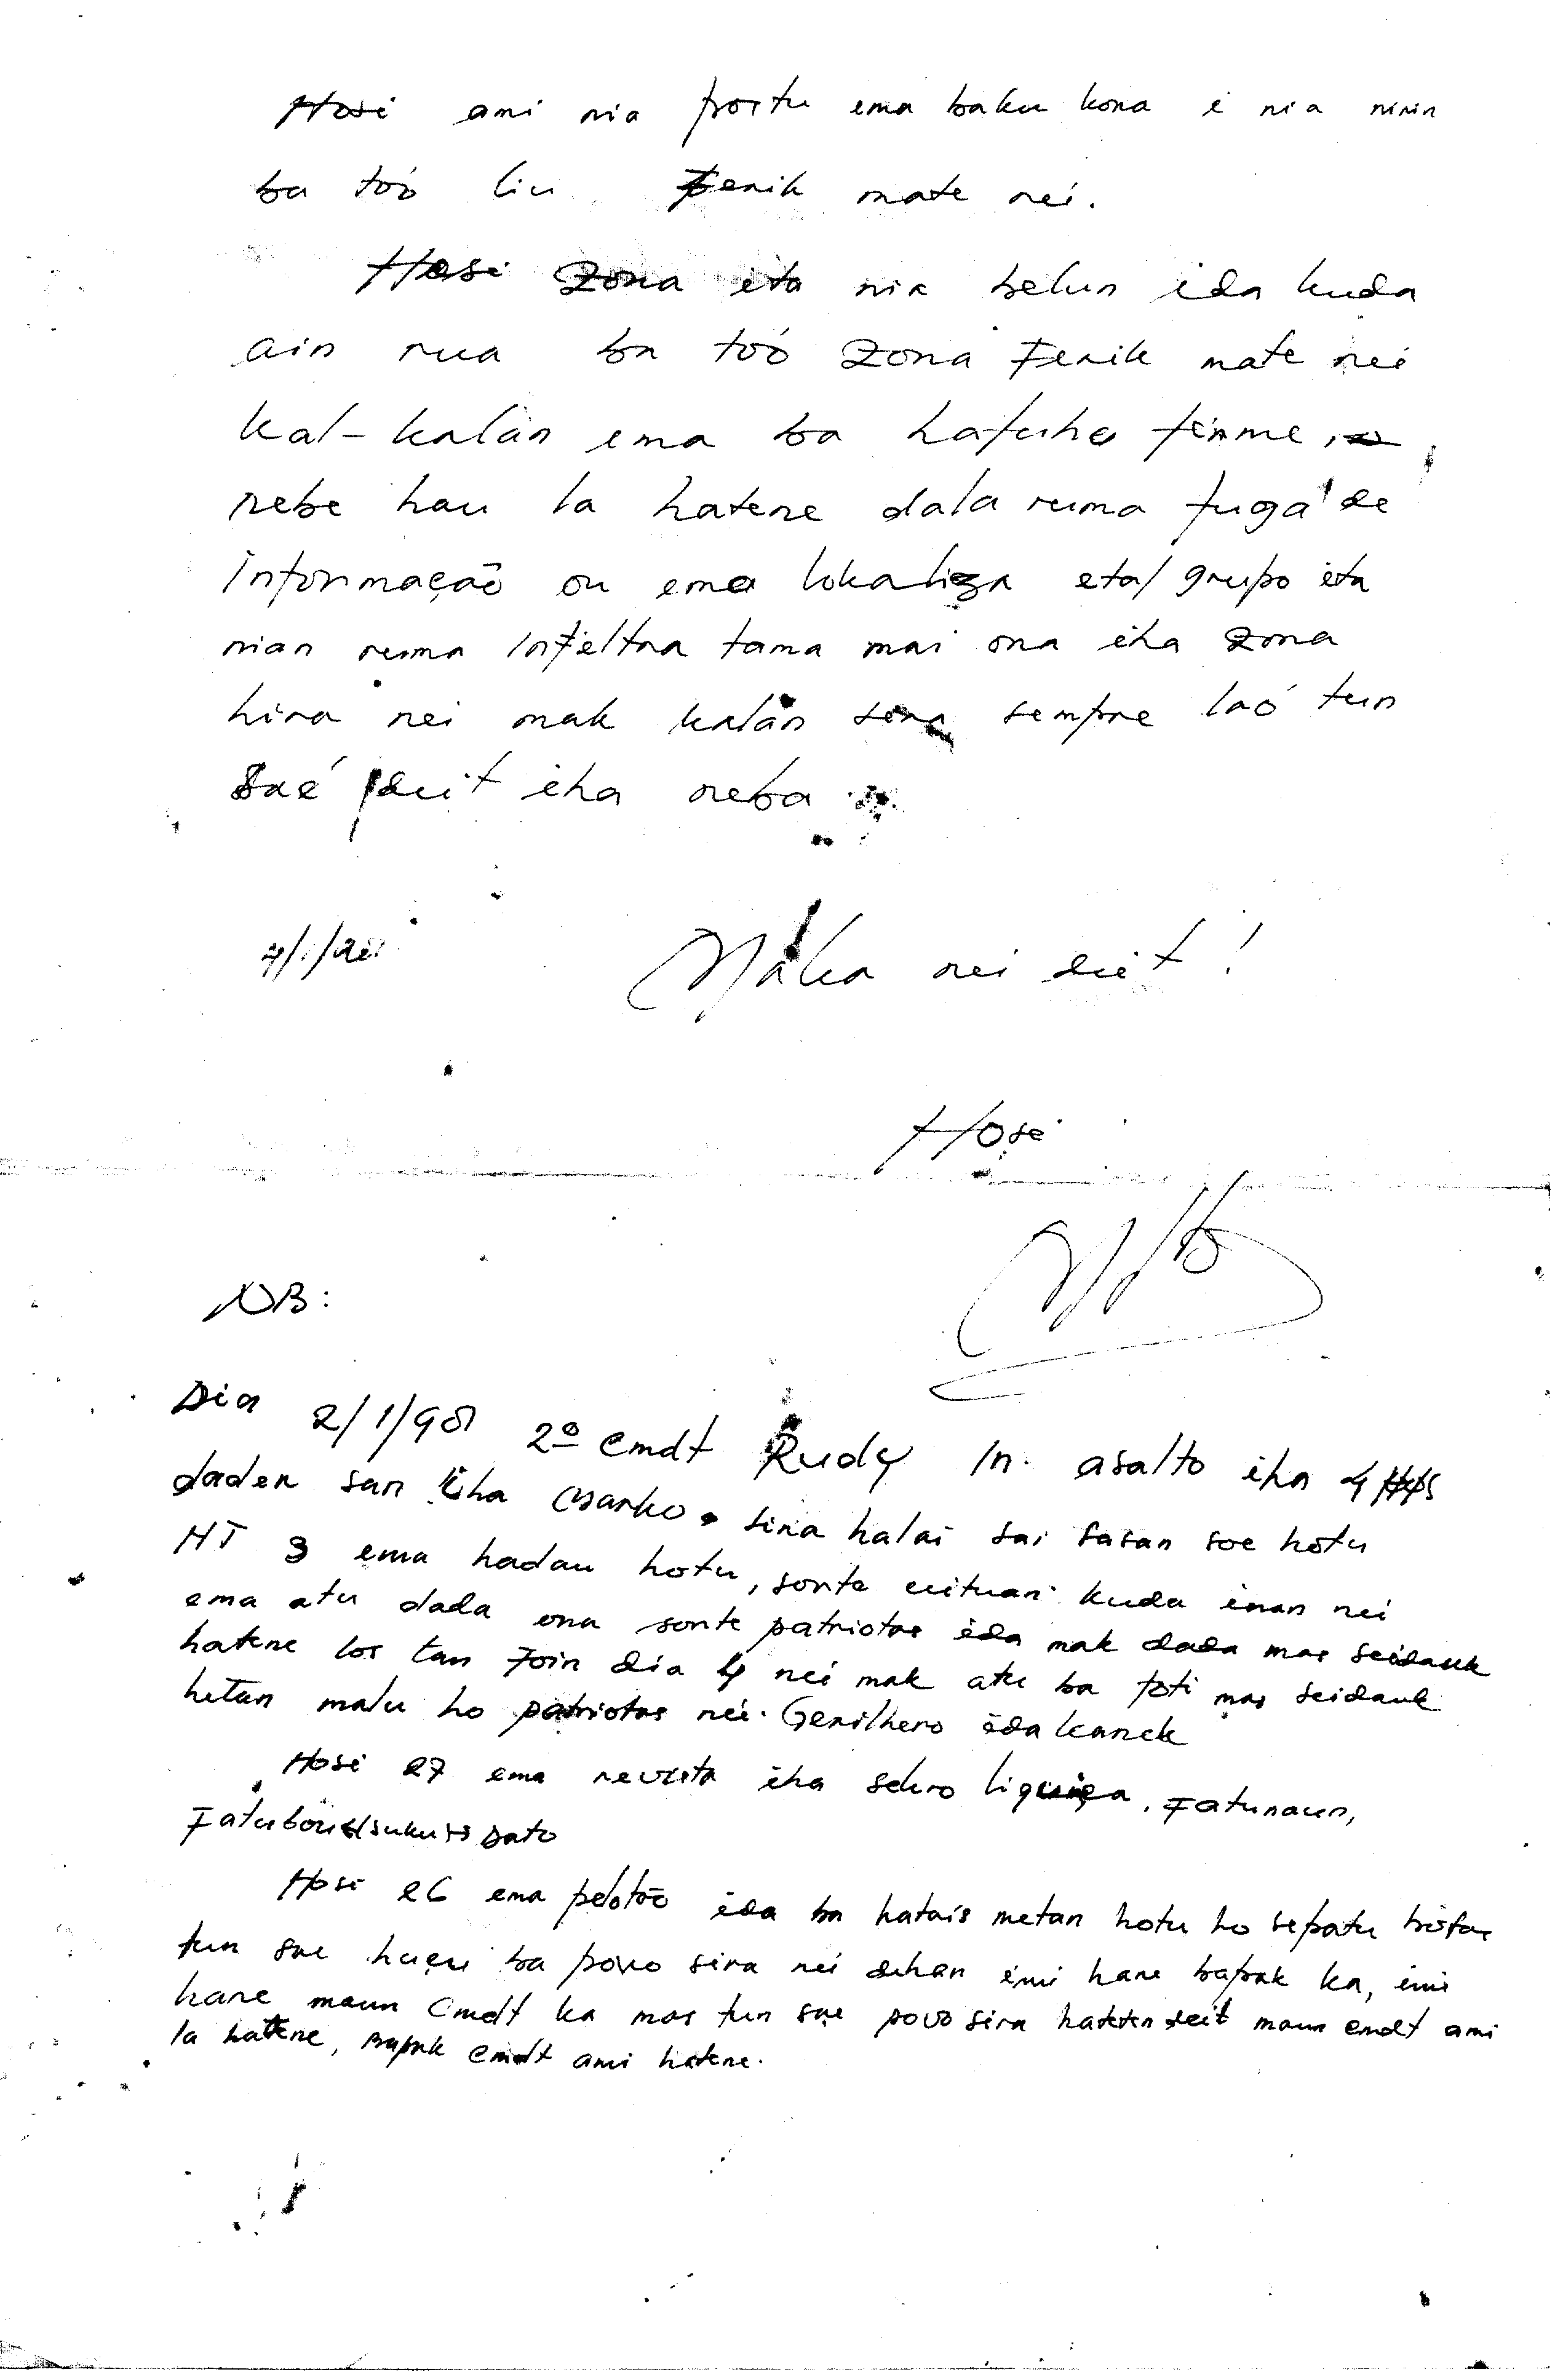 Hosi ami nia portu ema baku kona i nia ninin
ba too liu Ferik mate nei.
Hosi Zona ita nia belun ida kuda
ain rua ba too zona Ferik mate nei
kal-kalan ema ba hafuhu firme,
nebe hau la hatene dala ruma fuga de
informação ou ema lokaliza eta/grupo ita
nian ruma infeltra tama mai ona iha zona
hira nei mak kalan sira sempre lao tun
sae deit iha neba
Maka nei deit!
Hosi
NB:
Dia 2/1/98 2º Cmdt Rudy in asalto iha 4
dader san iha Marko. sira halai sai sasan soe hotu
HT 3 ema hadau hotu, sorte uituan kuda inan nei
ema atu dada ona sorte patriotas ida mak dada mas seidauk
hatene los tan foin dia 4 nei mak atu ba foti mas seidauk
hetan malu ho patriotas nei. Gerilhero ida kanek
Hosi 27 ema revista iha sekro liquiça, Fatunaun,
Fatubou suku Dato
Hosi 26 ema pelotão ida ba hatais metan hotu ho sepatu botas
tun sae husu ba povo sira nei dehan imi hare bapak ka, imi
hare maun Cmdt ka mas tun sae povo sira hateten deit maun cmdt ami
la hatene, bapak cmdt ami hatene.